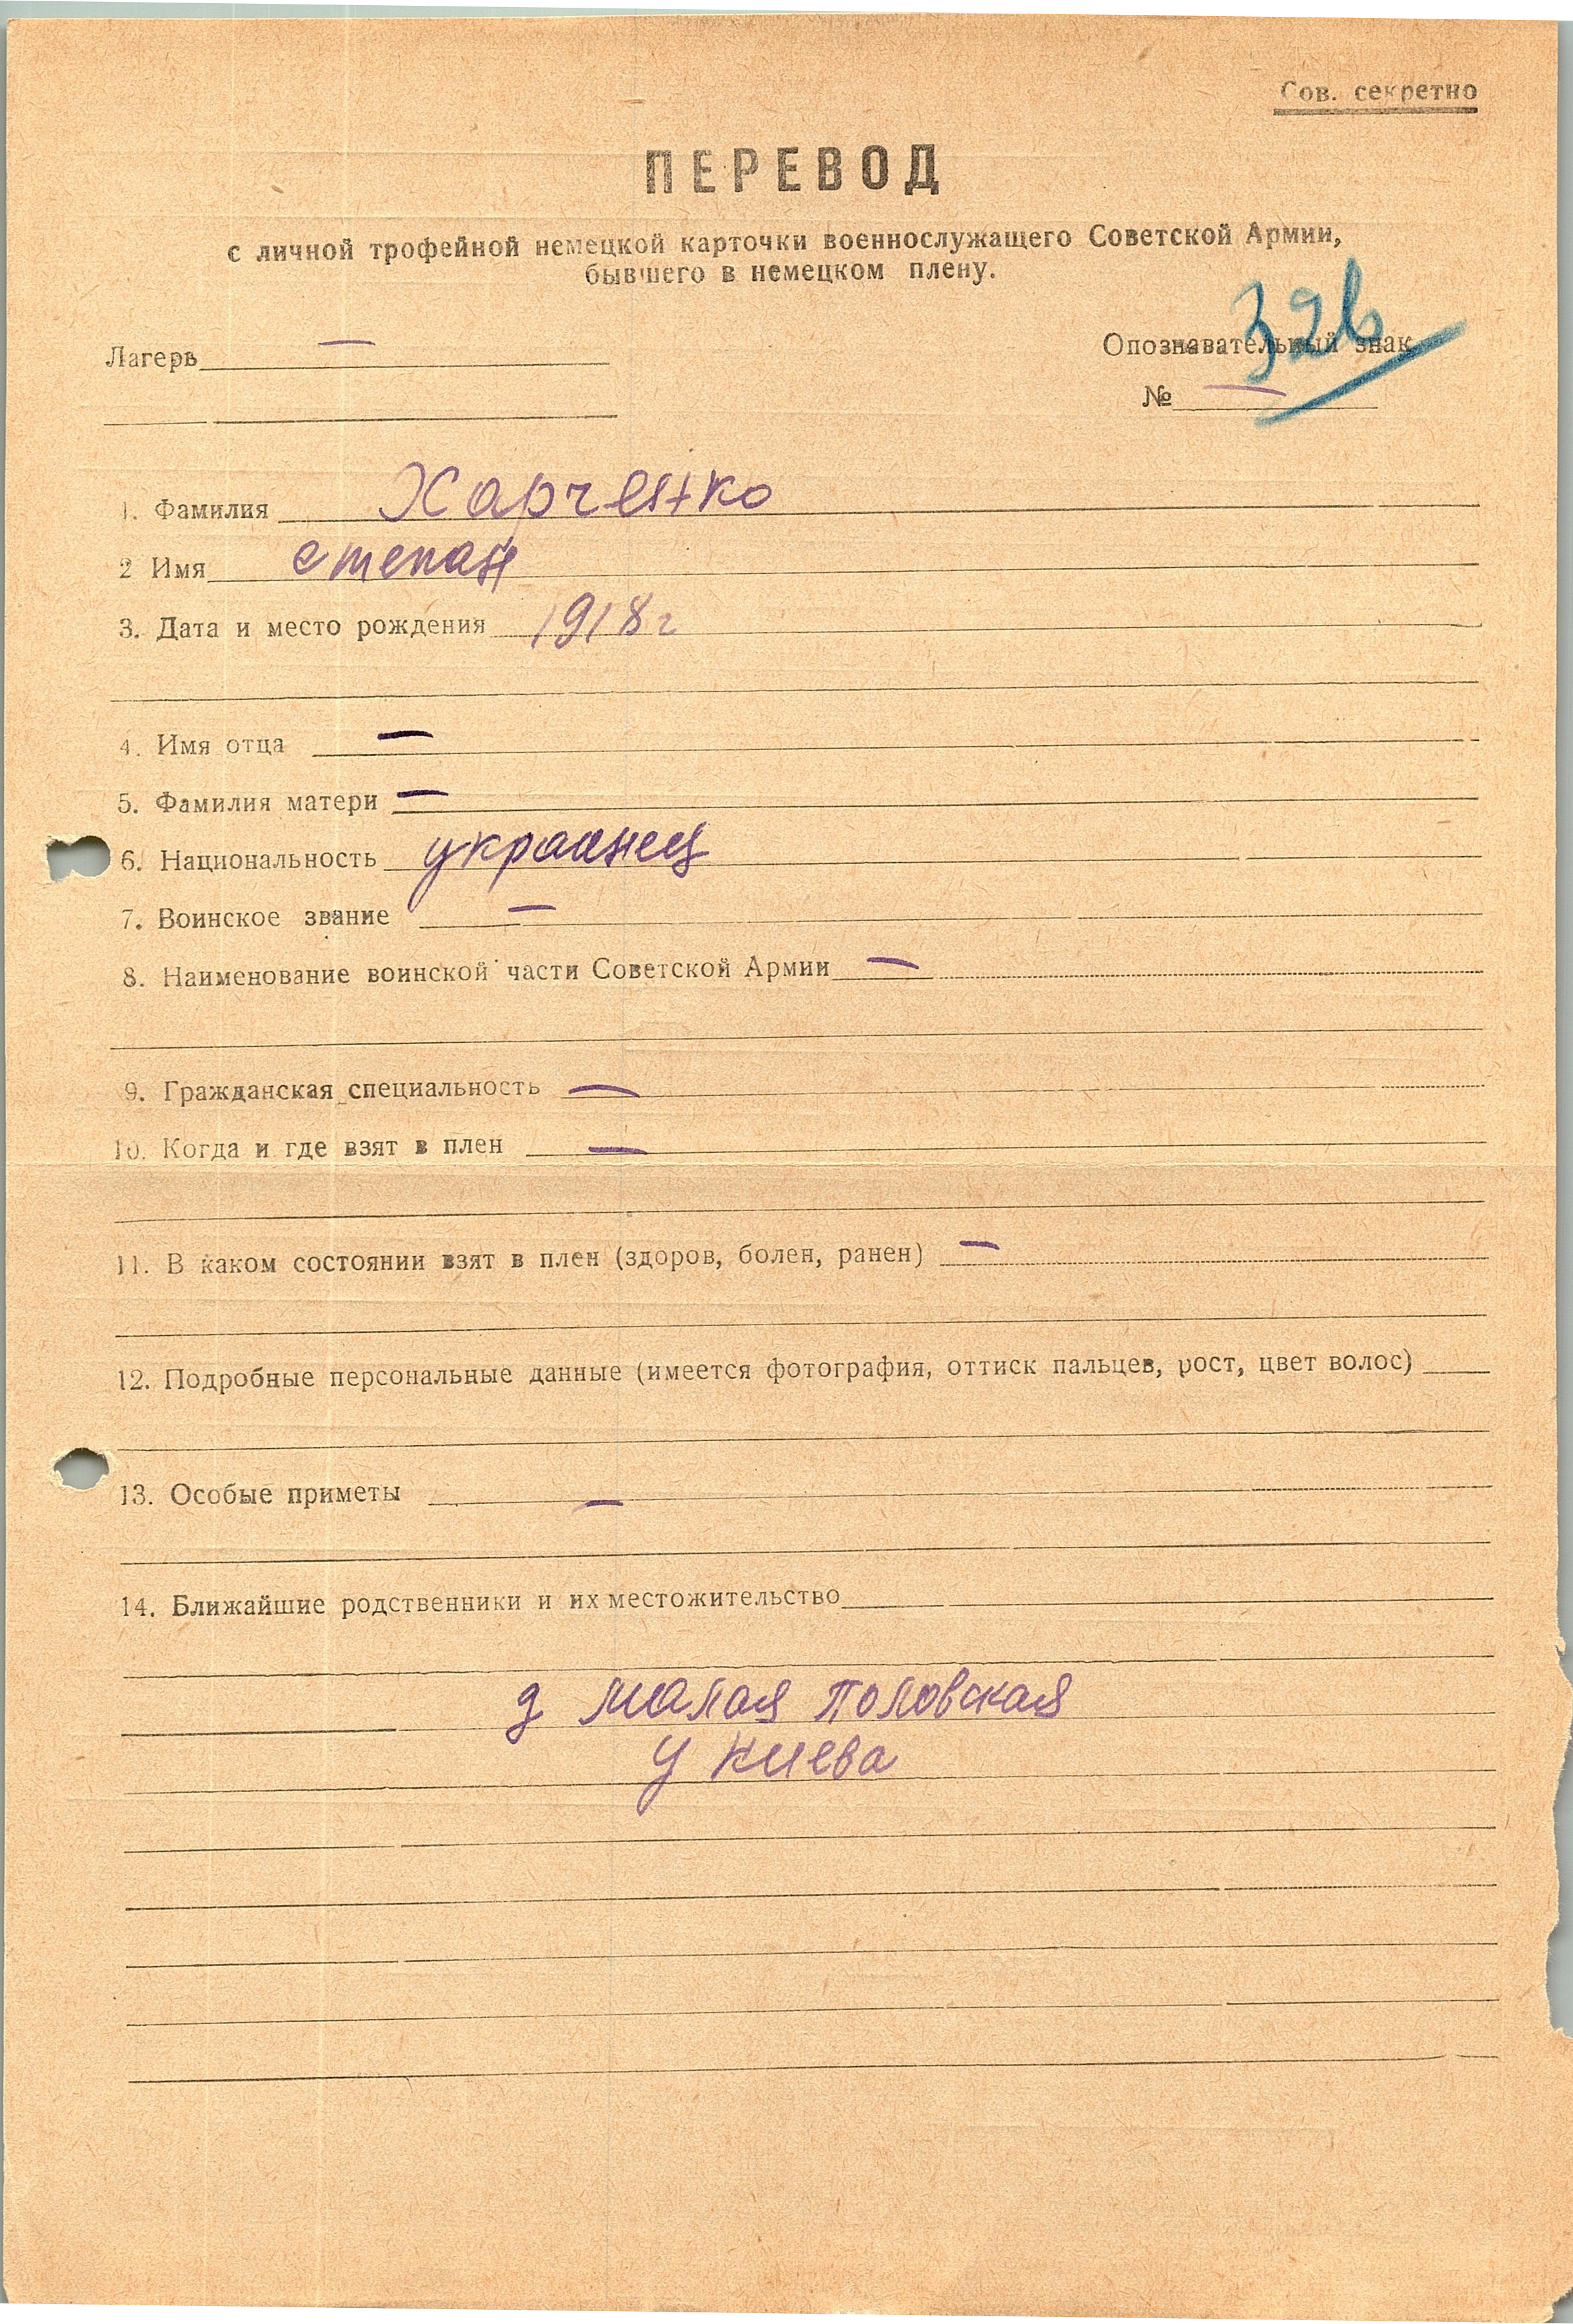 Сов. секретно
ПЕРЕВОД
с личной трофейной немецкой карточки военнослужащего Советской Армии,
бывшего в немецком плену.
Лагерь —
Опознавательный знак
№ —
1. Фамилия Харченко
2 Имя степан
3. Дата и место рождения 1918 г
4. Имя отца —
5. Фамилия матери —
6. Национальность украинец
7. Воинское звание —
8. Наименование воинской части Советской Армии —
9. Гражданская специальность —
10. Когда и где взят в плен —
11. В каком состоянии взят в плен (здоров, болен, ранен) —
12. Подробные персональные данные (имеется фотография, оттиск пальцев, рост, цвет волос)
13. Особые приметы —
14. Ближайшие родственники и их местожительство
д малая половская
у киева